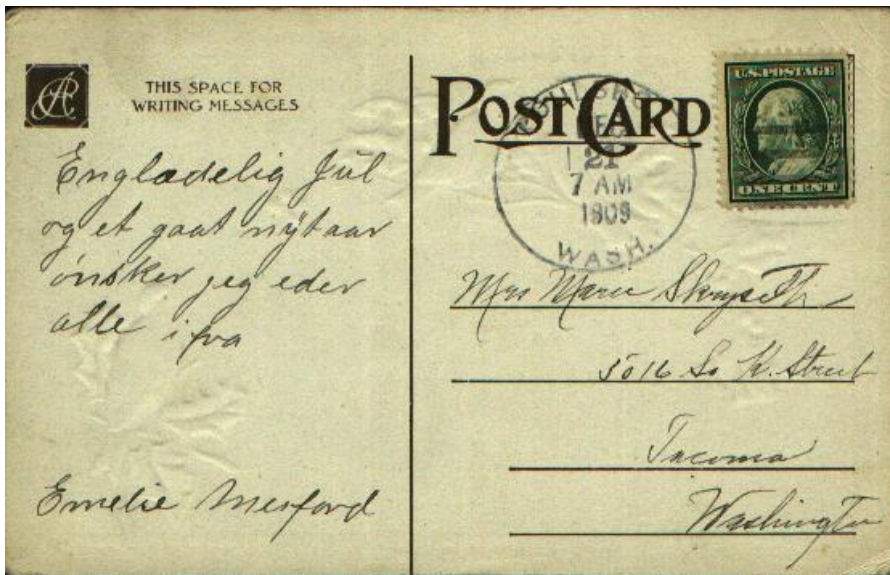 THIS SPACE FOR
WRITING MESSAGES
Englædelig Jul
og et gaat nÿtaar
önsker jeg eder
alle ifra
Emelie Mesford
POST CARD
21
7 AM
1909
WASH.
U.S. POSTAGE
ONE CENT
Mrs Marie Skrypseth
5016 So K. Street
Tacoma
Washington